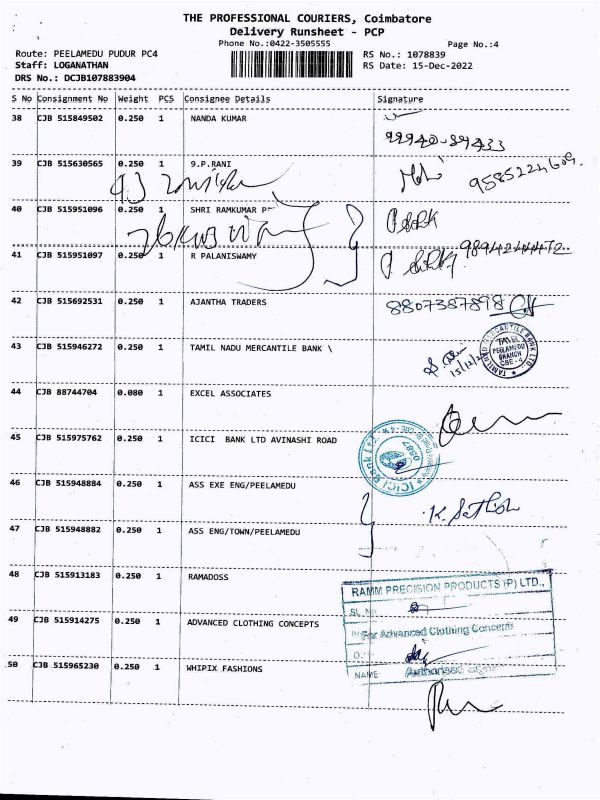 THE PROFESSIONAL COURIERS, Coimbatore
Delivery Runsheet - PCP
Phone No.:0422-3505555
Page No.:4
Route: PEELAMEDU PUDUR PC4
RS No.: 1078839
Staff: LOGANATHAN
RS Date: 15-Dec-2022
DRS No.: DCJB107883904
S No Consignment No Weight PCS Consignee Details Signature
38 CJB 515849502 0.250 1 NANDA KUMAR
99940-89433
39 CJB 515630565 0.250 1 9.P.RANI
9585224609
40 CJB 515951096 0.250 1 SHRI RAMKUMAR P
41 CJB 515951097 0.250 1 R PALANISWAMY
9894244472
42 CJB 515692531 0.250 1 AJANTHA TRADERS
8807387898
43 CJB 515946272 0.250 1 TAMIL NADU MERCANTILE BANK \
TAMILNAD MERCANTILE BANK LTD.
TMB
PEELAMEDU
BRANCH
CBE-4
44 CJB 88744704 0.080 1 EXCEL ASSOCIATES
45 CJB 515975762 0.250 1 ICICI BANK LTD AVINASHI ROAD
ICICI Bank Ltd.
0587
46 CJB 515948884 0.250 1 ASS EXE ENG/PEELAMEDU
K. Sathish
47 CJB 515948882 0.250 1 ASS ENG/TOWN/PEELAMEDU
48 CJB 515913183 0.250 1 RAMADOSS
RAMM PRECISION PRODUCTS (P) LTD.,
SL.No
49 CJB 515914275 0.250 1 ADVANCED CLOTHING CONCEPTS
For Advanced Clothing Concepts
50 CJB 515965230 0.250 1 WHIPIX FASHIONS
NAME
Authorised